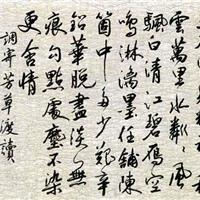 雲萬里水粼粼風
飄白清江碧雁空
鳴淋漓墨任鋪陳
箇中多少艱辛
鉛華脫盡淡無
痕勾點處塵不染
更含情
調寄芳草渡讀